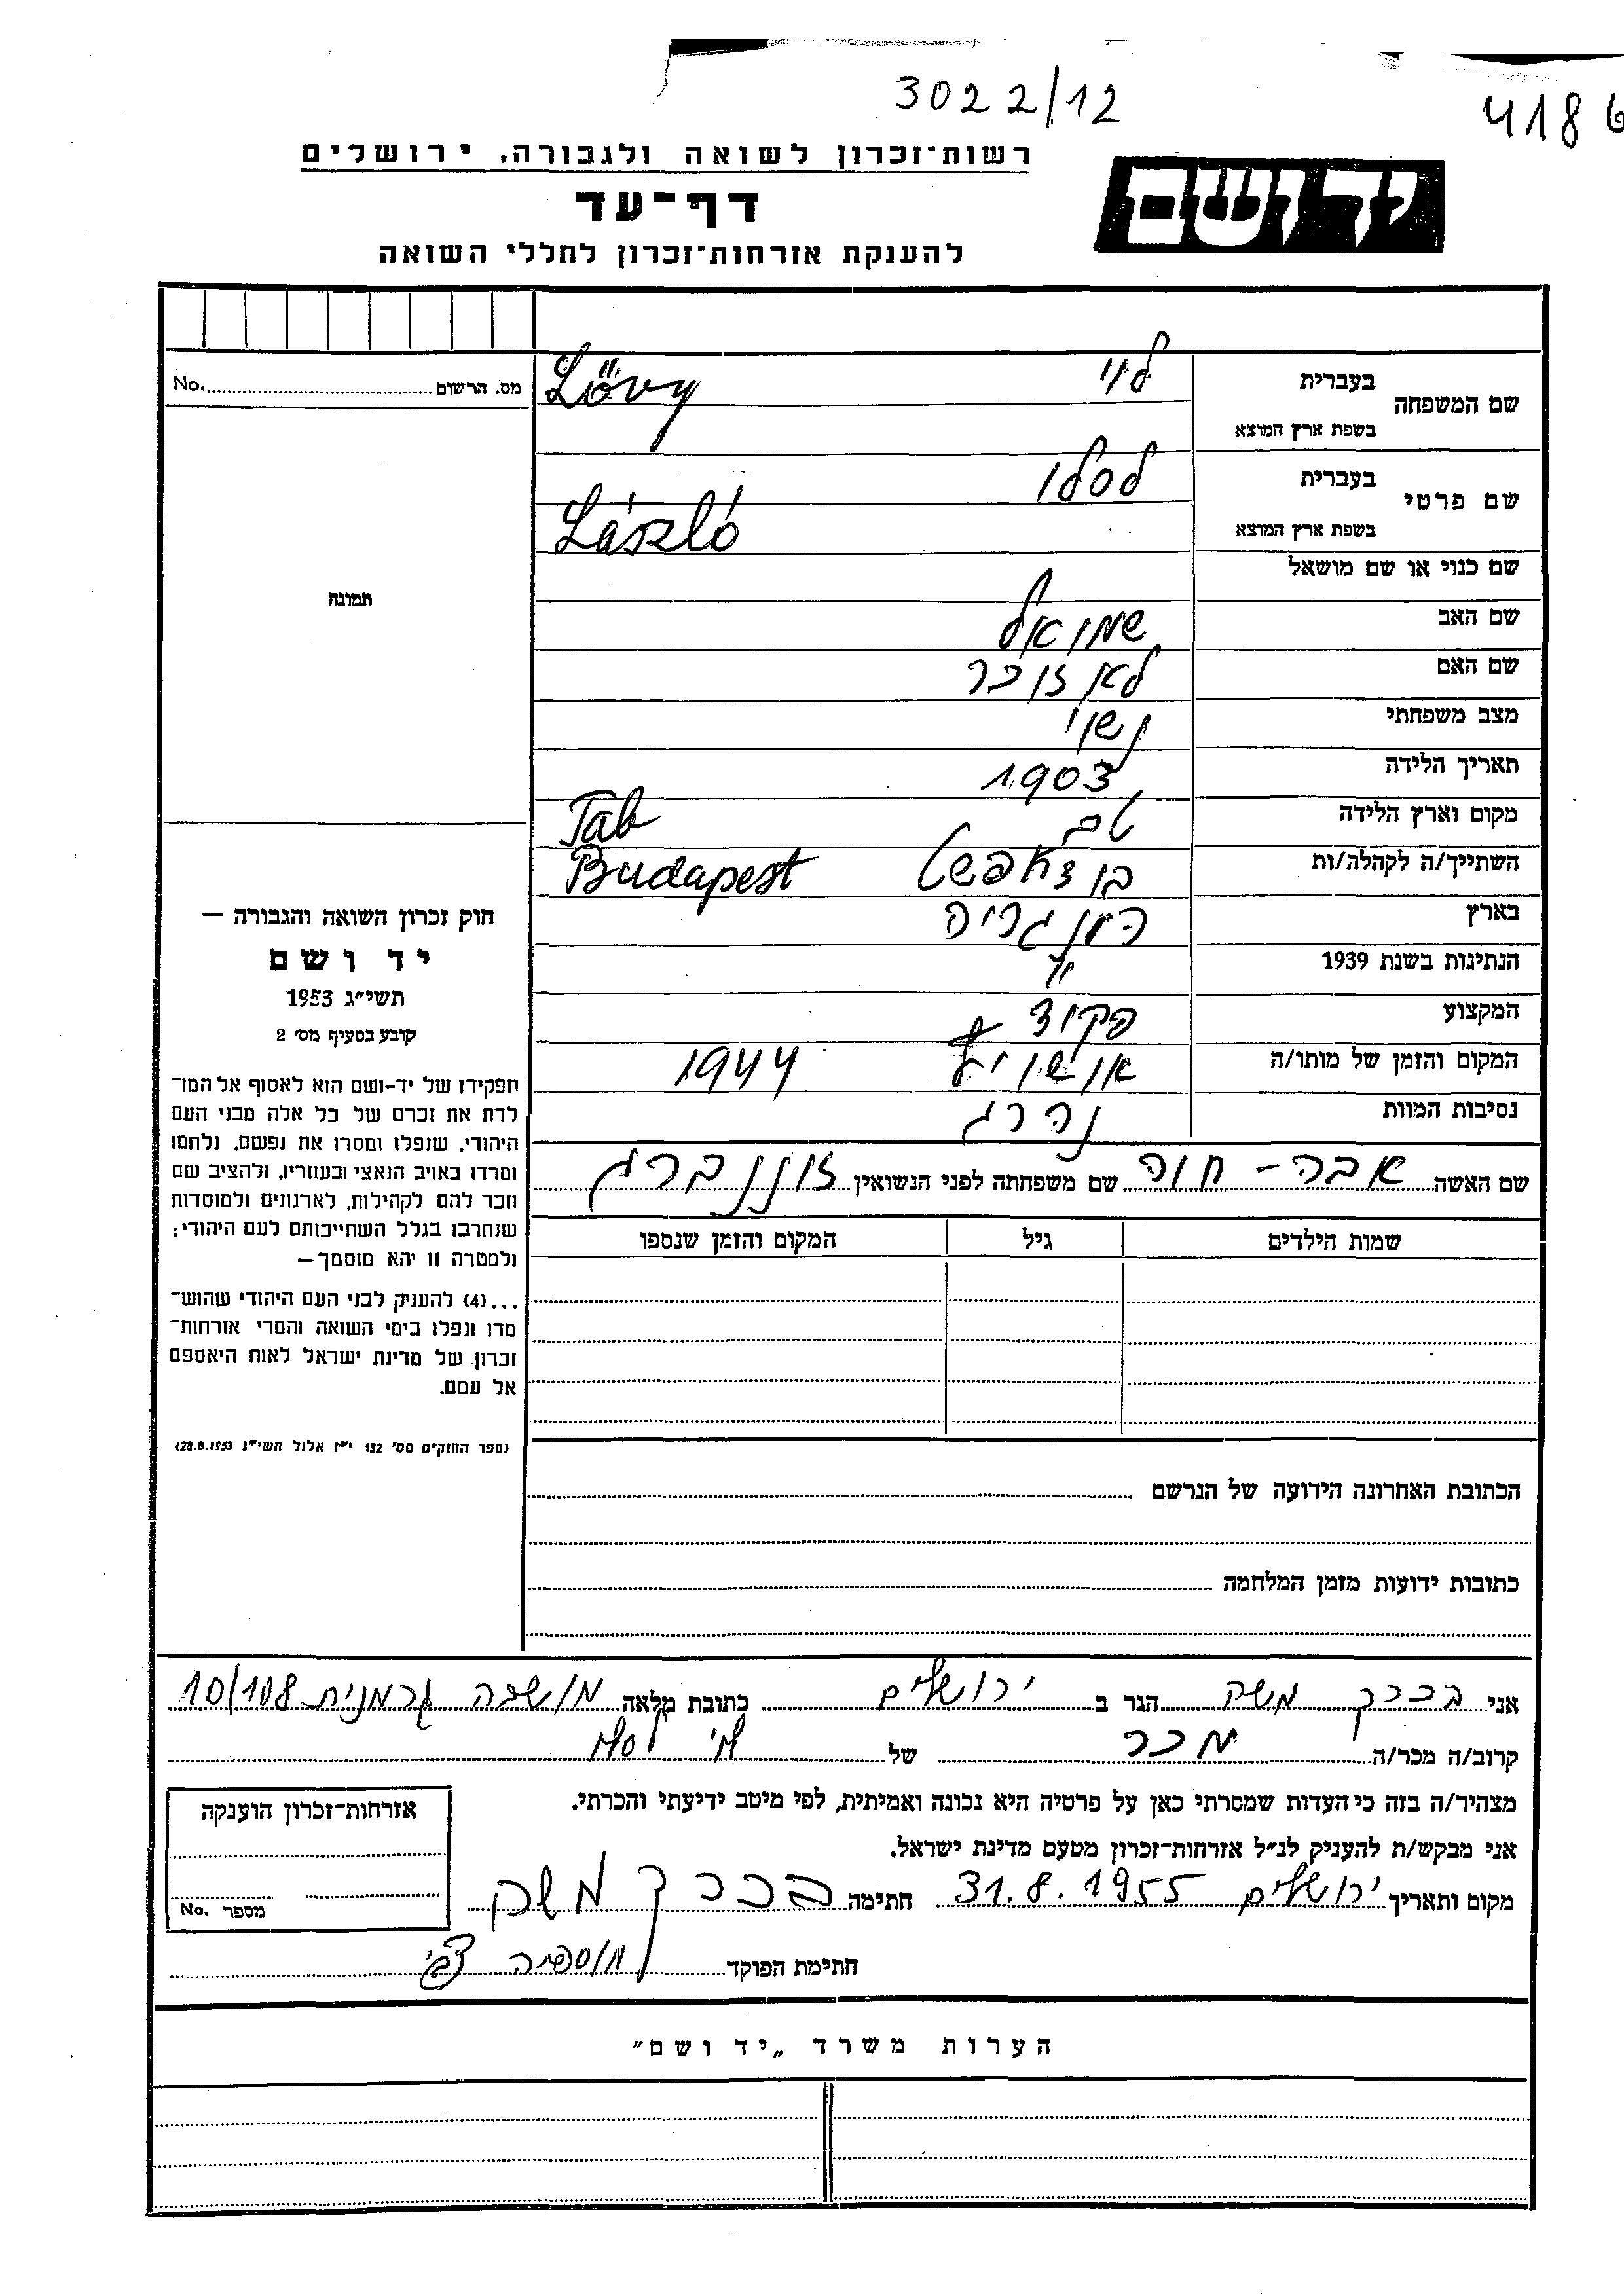 3022/12
4186
רשות־זכרון לשואה ולגבורה, ירושלים
יד ושם
דף־עד
להענקת אזרחות־זכרון לחללי השואה
מס. הרשום No.
תמונה
שם המשפחה בעברית לוי
בשפת ארץ המוצא Lövy
שם פרטי בעברית לסלו
בשפת ארץ המוצא László
שם כנוי או שם מושאל
שם האב שמואל
שם האם לא זוכר
מצב משפחתי נשוי
תאריך הלידה 1903
מקום וארץ הלידה טב Tab
השתייך/ה לקהלה/ות בודאפשט Budapest
בארץ הונגריה
הנתינות בשנת 1939 "
המקצוע פקיד
המקום והזמן של מותו/ה אושויץ 1944
נסיבות המוות נהרג
שם האשה אבה - חוה שם משפחתה לפני הנשואין זוננברג
שמות הילדים גיל המקום והזמן שנספו
הכתובת האחרונה הידועה של הנרשם
כתובות ידועות מזמן המלחמה
חוק זכרון השואה והגבורה —
יד ושם
תשי"ג 1953
קובע בסעיף מס' 2
תפקידו של יד-ושם הוא לאסוף אל המו־
לדת את זכרם של כל אלה מבני העם
היהודי, שנפלו ומסרו את נפשם, נלחמו
ומרדו באויב הנאצי ובעוזריו, ולהציב שם
וזכר להם לקהילות, לארגונים ולמוסדות
שנחרבו בגלל השתייכותם לעם היהודי;
ולמטרה זו יהא מוסמך—
...(4) להעניק לבני העם היהודי שהוש־
מדו ונפלו בימי השואה והמרי אזרחות־
זכרון של מדינת ישראל לאות היאספם
אל עמם.
(ספר החוקים מס' 132 י"ז אלול תשי"ג 28.8.1953)
אני בכרך משה הגר ב ירושלים כתובת מלאה מושבה גרמנית 10/108
קרוב/ה מכר/ה מכר של
מצהיר/ה בזה כי העדות שמסרתי כאן על פרטיה היא נכונה ואמיתית, לפי מיטב ידיעתי והכרתי.
אני מבקש/ת להעניק לנ"ל אזרחות־זכרון מטעם מדינת ישראל.
מקום ותאריך ירושלים 31.8.1955 חתימה בכרך משה
חתימת הפוקד
אזרחות־זכרון הוענקה
מספר No.
הערות משרד „יד ושם"